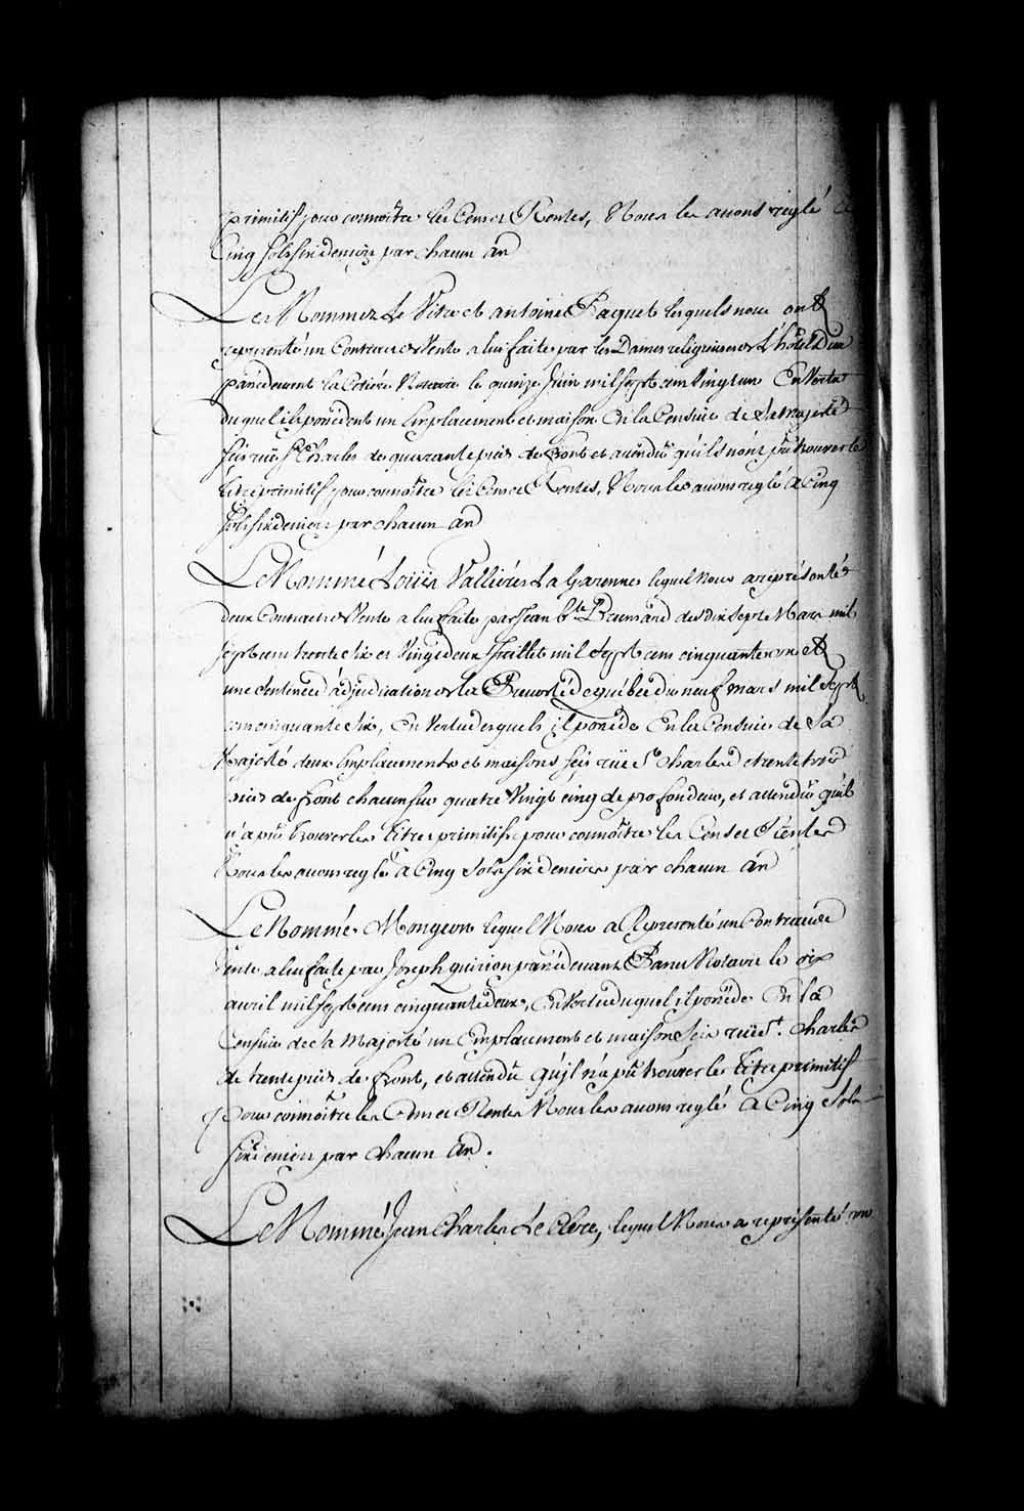 primitif pour connoître les Cens et Rentes, Nous les avons reglé a
Cinq sols six deniers par chacun an
Les Nommez Le Vitre et antoine Paquet lesquels nous ont
representé un Contract de Vente a lui faite par les Dames religieuses de L'hôtel Dieu
pardevant la Cetière Notaire le quinze Juin mil sept cent vingt un En Vertu
duquel ils possedent un Emplacement et maison En la Censive de Sa Majesté
sis rüe St Charles de quarante pieds de front et attendû qu'ils n'ont pû trouver le
titre primitif pour connoître les Cens et Rentes, Nous les avons reglé a Cinq
sols six deniers par chacun an
Le Nommé Loüis Vallieres La Garenne lequel Nous a représenté
deux Contracts de Vente a lui faite par Jean Bte Brunard des dix sept Mars mil
sept cent trente six et Vingt deux Juillet mil sept cent cinquante un et
une Sentence d'adjudication de la Prevosté de quebec du neuf mars mil sept
cent cinquante six, En Vertu desquels il possede En la Censive de Sa
Majesté deux Emplacements et maisons sis rüe St Charles de trente trois
pieds de front chacun sur quatre Vingt cinq de profondeur, et attendû qu'il
n'a pû trouver les titres primitifs pour connoître les Cens et Rentes
Nous les avons reglé a Cinq Sols six deniers par chacun an
Le Nommé Mongeon lequel Nous a Representé un Contract de
Vente a lui faite par Joseph quirion pardevant Panet Notaire le dix
avril mil sept cent cinquante deux, En Vertu duquel il possede En la
Censive de Sa Majesté un Emplacement et maison Sis rüe St. Charles
de trente pieds de front, et attendu qu'il n'a pû trouver le titre primitif
Pour connoître les Cens et Rentes Nous les avons reglé a Cinq Sols
six deniers par chacun an.
Le Nommé Jean Charles Le Clerc, lequel Nous a représenté un